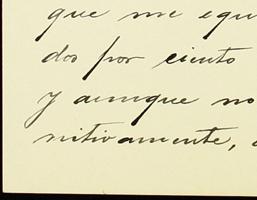 que me equi
dos por ciento
y aunque no
nitivamente,